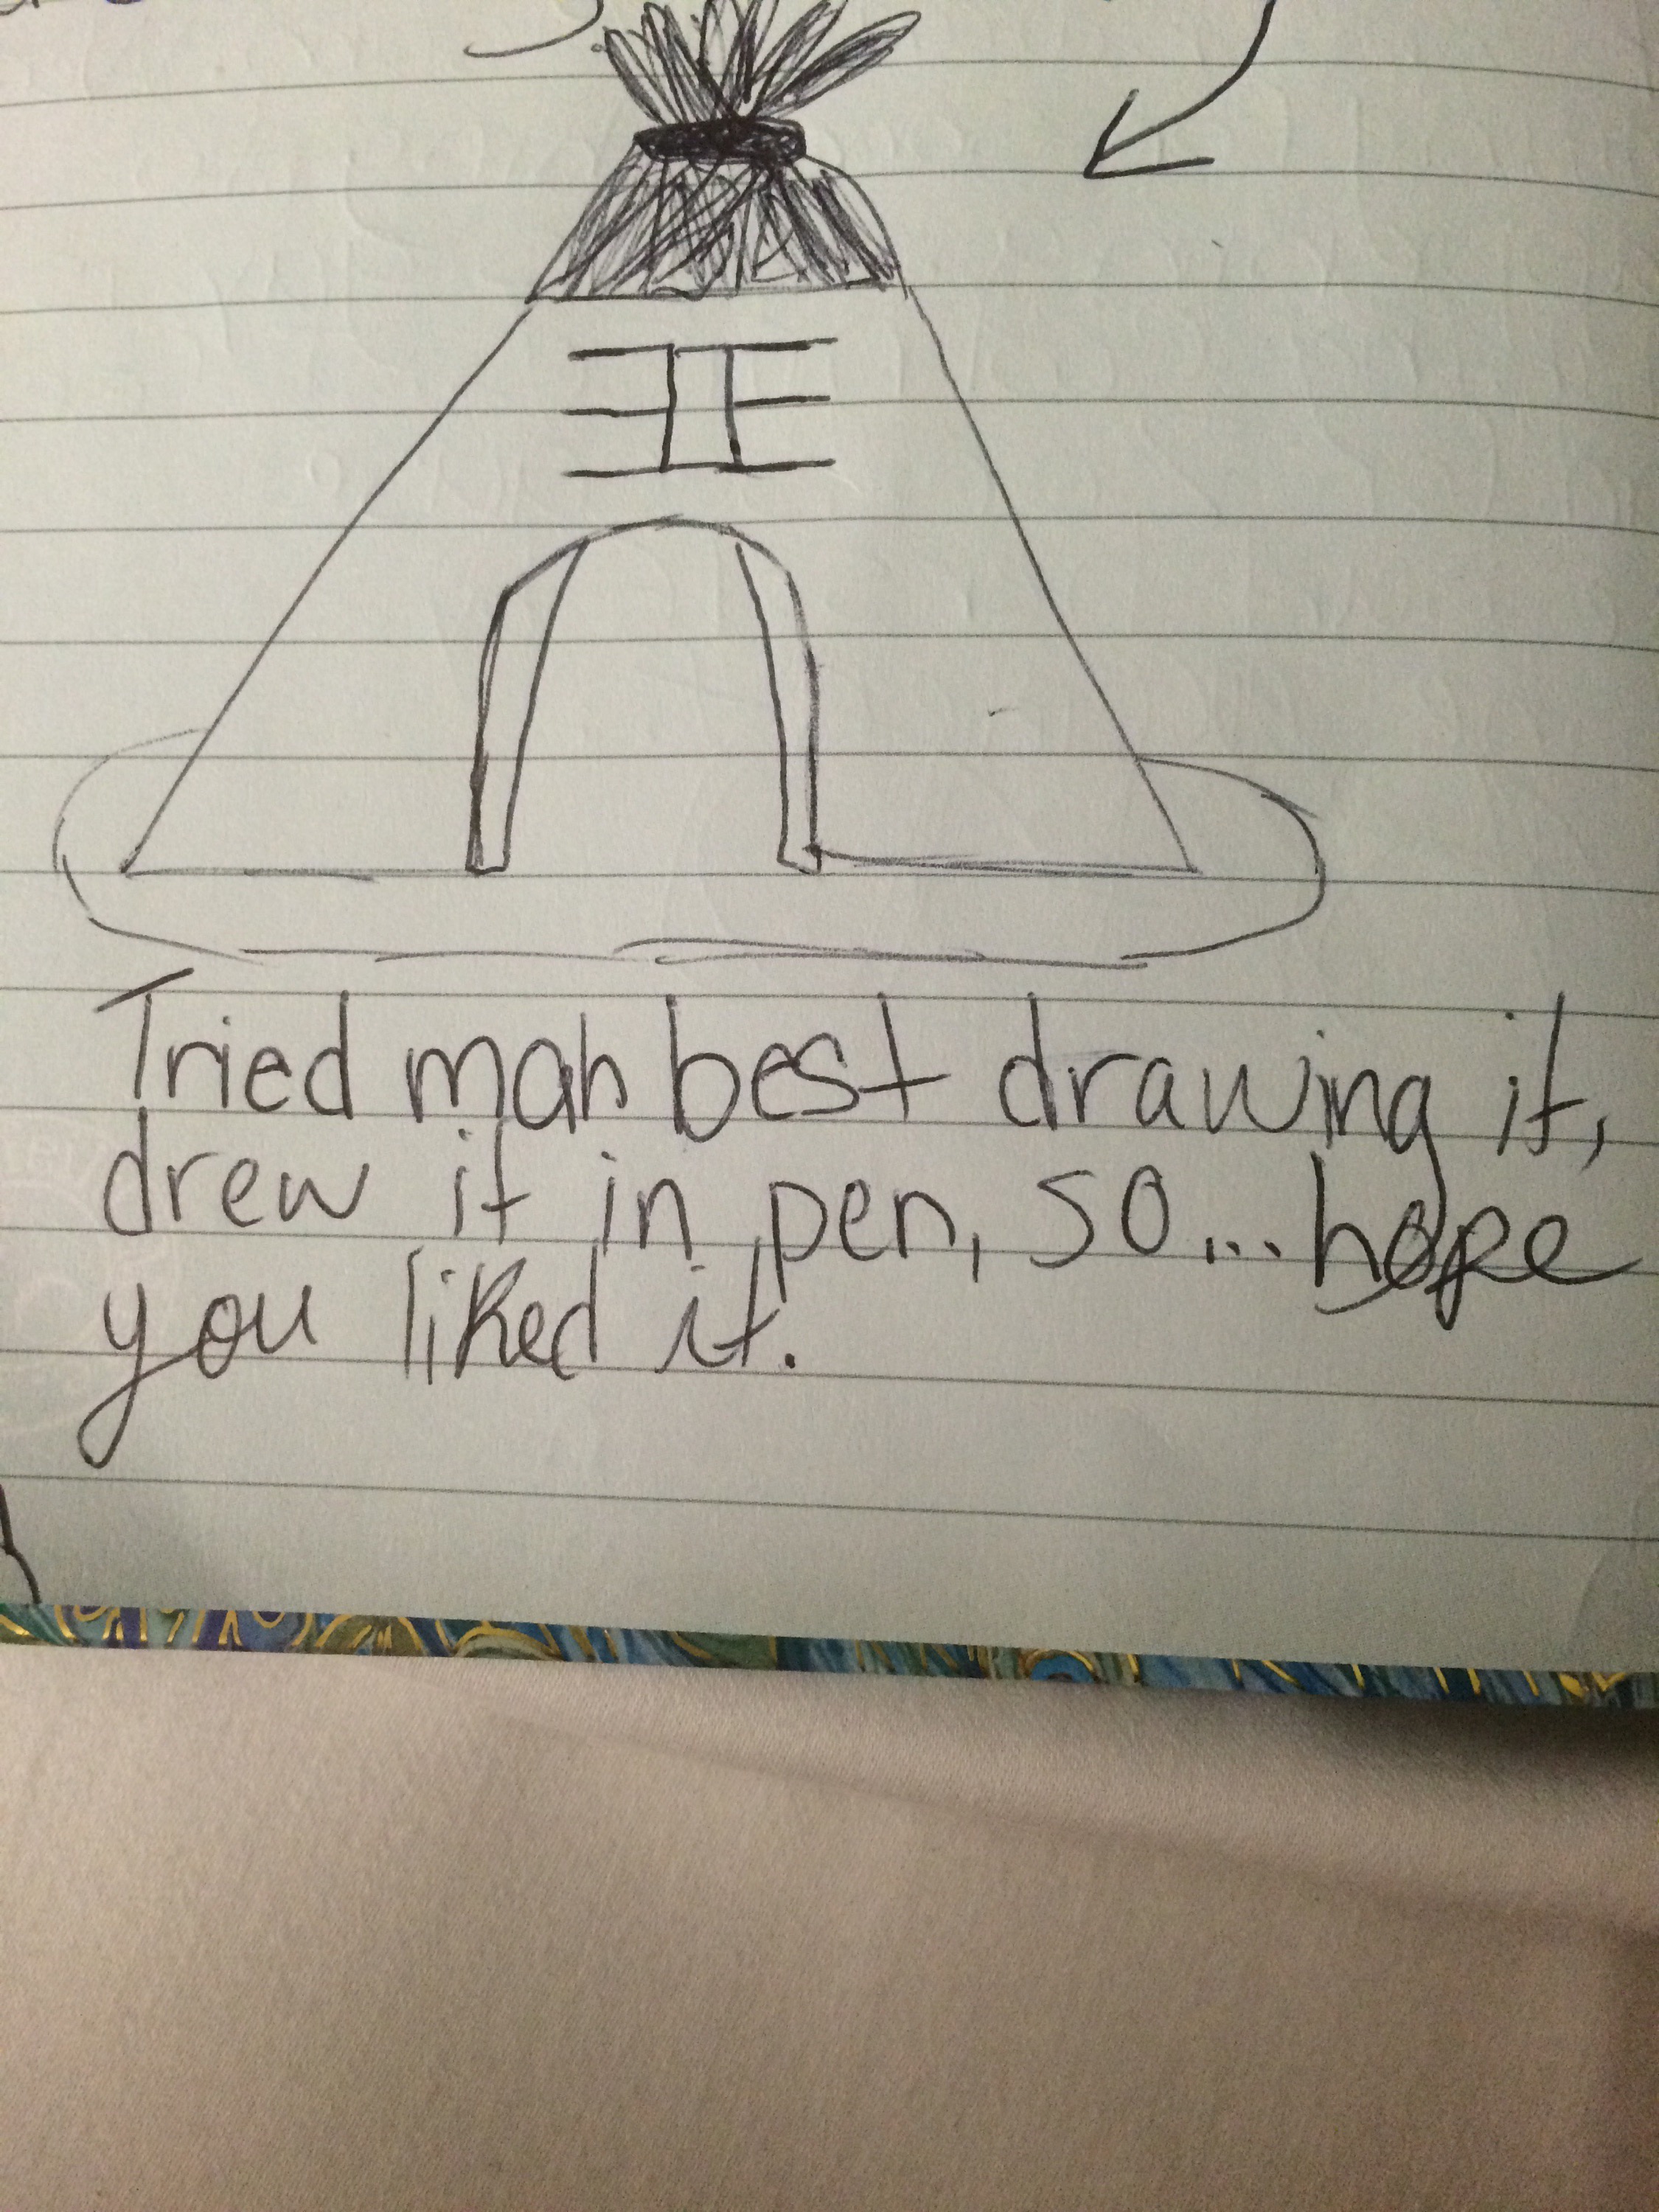 Tried mah best drawing it,
drew it in pen, so... hope
you liked it.